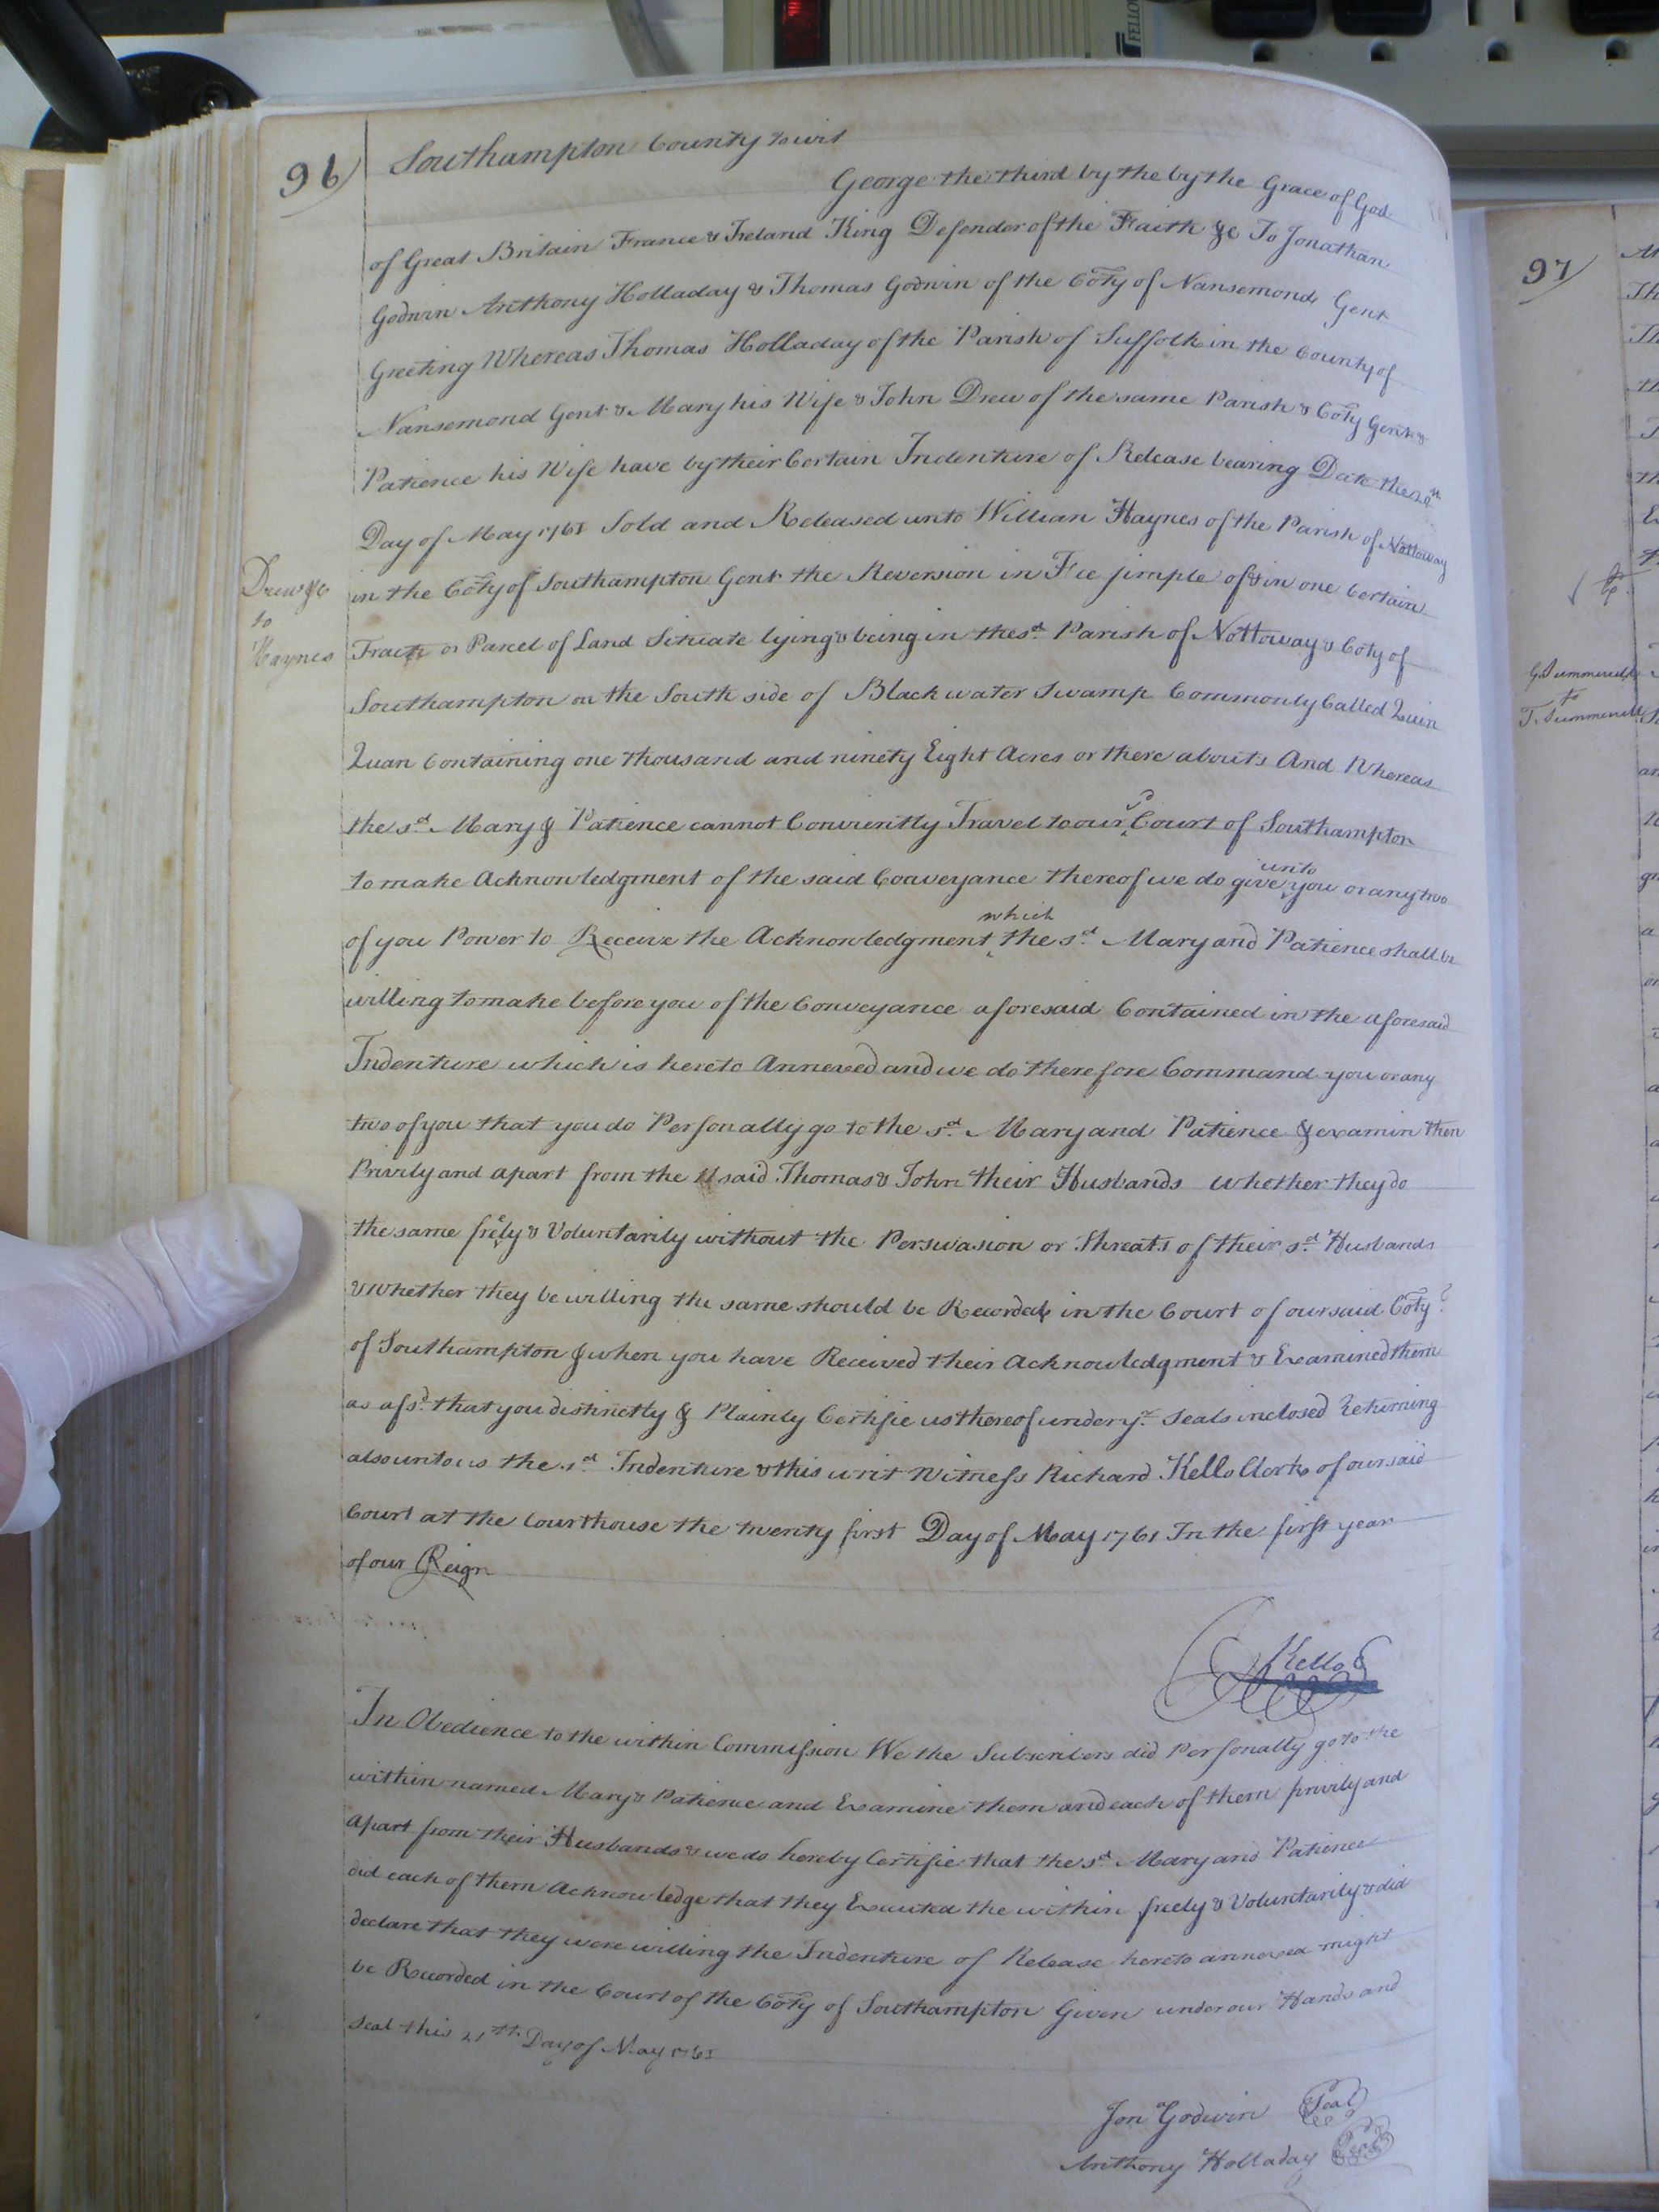 FELLO
96
Southampton County to wit
George the third by the by the Grace of God
of Great Britain France & Ireland King Defender of the Faith &c To Jonathan
Godwin Anthony Holladay & Thomas Godwin of the Coty of Nansemond Gent
Greeting Whereas Thomas Holladay of the Parish of Suffolk in the County of
Nansemond Gent & Mary his Wife & John Drew of the same Parish & Coty Gent &
Patience his Wife have by their Certain Indenture of Release bearing Date the
Day of May 1761 Sold and Released unto William Haynes of the Parish of Nottoway
Drew &c
to
Haynes
in the Coty of Southampton Gent the Reversion in Fee simple of & in one Certain
Tract or Parcel of Land Situate lying & being in the sd Parish of Nottoway & Coty of
Southampton on the South side of Black water Swamp Commonly Called Quin
Quan Containing one thousand and ninety Eight Acres or there abouts And Whereas
the sd Mary & Patience cannot Conviently Travel to our sd Court of Southampton
to make Acknowledgment of the said Conveyance thereof we do give unto you or any two
of you Power to Receive the Acknowledgment which the sd Mary and Patience shall be
willing to make before you of the Conveyance aforesaid Contained in the aforesaid
Indenture which is hereto Annexed and we do therefore Command you or any
two of you that you do Personally go to the sd Mary and Patience & examin them
Privily and apart from the said Thomas & John their Husbands whether they do
the same freely & Voluntarily without the Perswasion or Threats of their sd Husbands
& Whether they be willing the same should be Recorded in the Court of our said Coty
of Southampton & when you have Received their Acknowledgment & Examined them
as afsd that you distinctly & Plainly Certifie us thereof under yr Seals inclosed Returning
also unto us the sd Indenture & this writ Witness Richard Kello Clerk of our said
Court at the Courthouse the twenty first Day of May 1761 In the first year
of our Reign
Kello
In Obedience to the within Commission We the Subscribers did Personally go to the
within named Mary & Patience and Examine them and each of them privily and
apart from their Husbands & we do hereby Certifie that the sd Mary and Patience
did each of them Acknowledge that they Executed the within freely & Voluntarily & did
declare that they were willing the Indenture of Release hereto annexed might
be Recorded in the Court of the Coty of Southampton Given under our Hands and
Seal this 21th Day of May 1761
Jona Godwin Seal
Anthony Holladay Seal
97
to